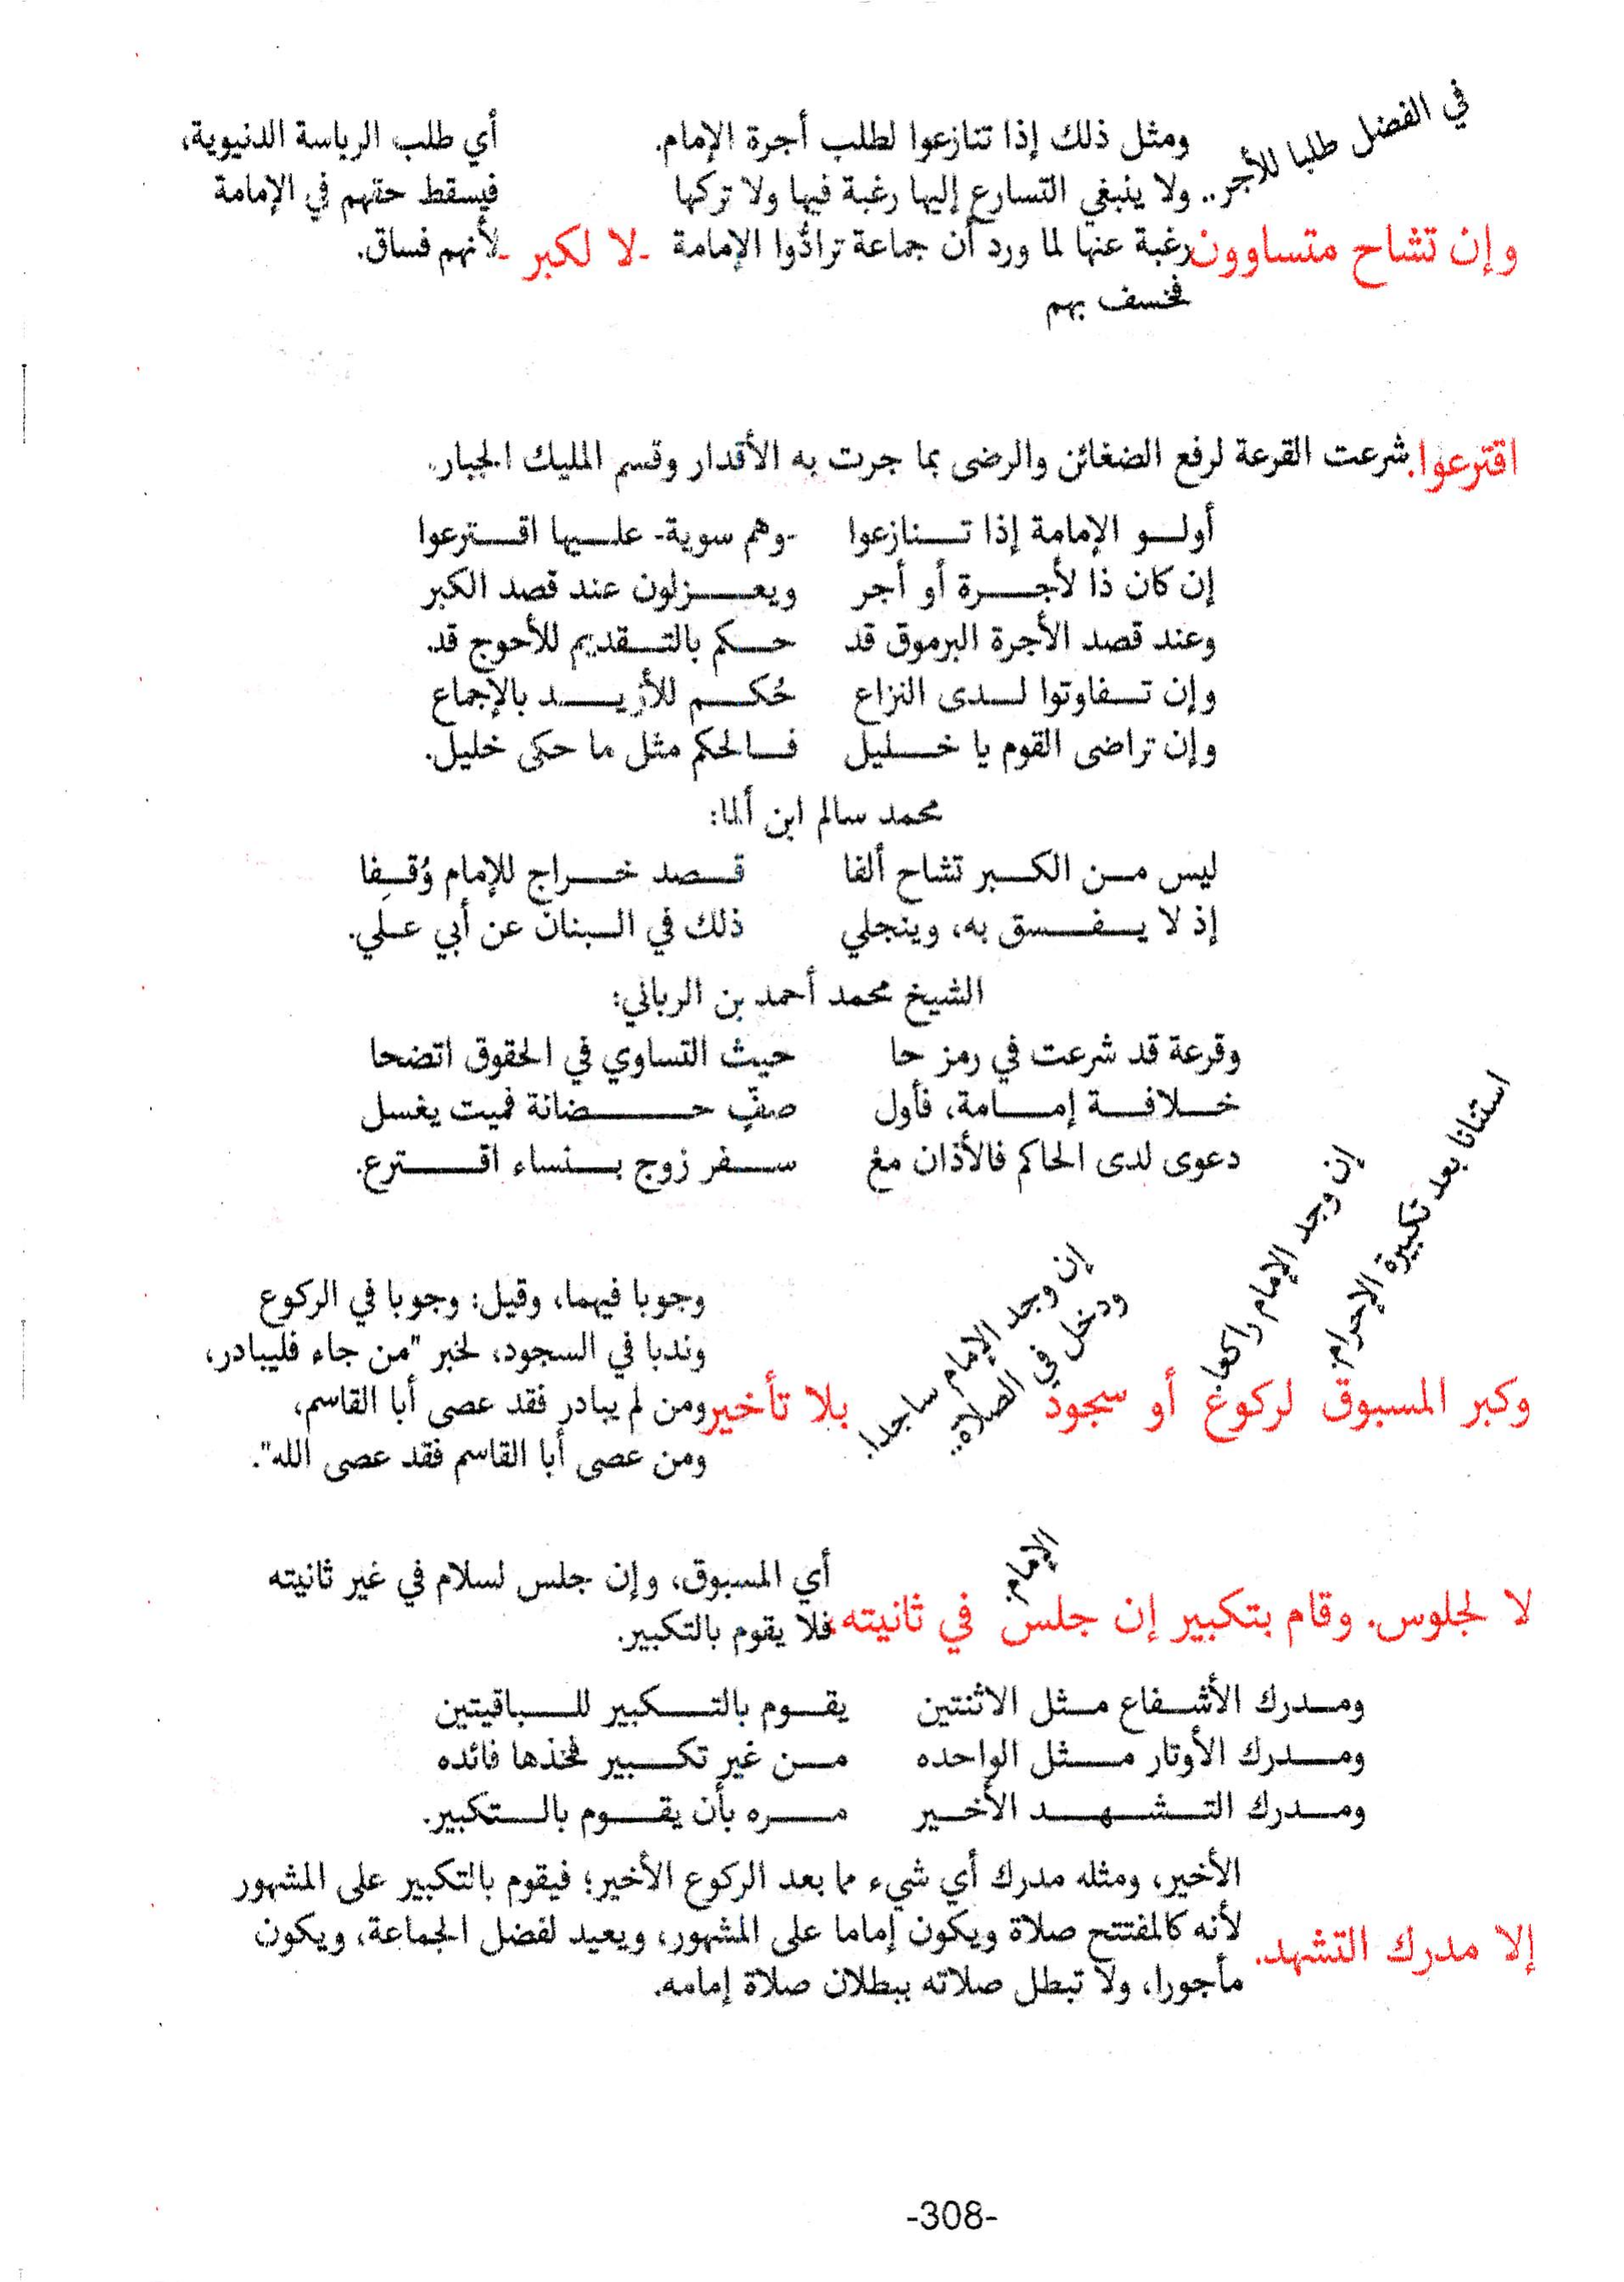 في الفضل طلبا للأجر..
وإن تشاح متساوون
ومثل ذلك إذا تنازعوا لطلب أجرة الإمام.
ولا ينبغي التسارع إليها رغبة فيها ولا تركها
رغبة عنها لما ورد أن جماعة ترادُّوا الإمامة
فخسف بهم
-لا لكبر-
أي طلب الرياسة الدنيوية،
فيسقط حقهم في الإمامة
لأنهم فساق.
اقترعوا. شرعت القرعة لرفع الضغائن والرضى بما جرت به الأقدار وقسم المليك الجبار.
أولو الإمامة إذا تنازعوا -وهم سوية- عليها اقترعوا
إن كان ذا لأجرة أو أجر ويعزلون عند قصد الكبر
وعند قصد الأجرة البرموق قد حكم بالتقديم للأحوج قد.
وإن تفاوتوا لدى النزاع حُكم للأزيد بالإجماع
وإن تراضى القوم يا خليل فالحكم مثل ما حكى خليل.
محمد سالم ابن ألما:
ليس من الكبر تشاح ألفا قصد خراج للإمام وُقِفا
إذ لا يفسق به، وينجلي ذلك في البنان عن أبي علي.
الشيخ محمد أحمد بن الرباني:
وقرعة قد شرعت في رمز حا حيث التساوي في الحقوق اتضحا
خلافة إمامة، فأول صفٍّ حضانة فميت يغسل
دعوى لدى الحاكم فالأذان مع سفر زوج بنساء اقترع.
استنانا بعد تكبيرة الإحرام.
إن وجد الإمام راكعا.
إن وجد الإمام ساجدا.
ودخل في الصلاة..
وكبر المسبوق لركوع أو سجود بلا تأخير
وجوبا فيهما، وقيل: وجوبا في الركوع
وندبا في السجود، لخبر "من جاء فليبادر،
ومن لم يبادر فقد عصى أبا القاسم،
ومن عصى أبا القاسم فقد عصى الله".
الإمام.
لا لجلوس. وقام بتكبير إن جلس في ثانيته.
أي المسبوق، وإن جلس لسلام في غير ثانيته
فلا يقوم بالتكبير.
ومدرك الأشفاع مثل الاثنتين يقوم بالتكبير للباقيتين
ومدرك الأوتار مثل الواحده من غير تكبير فخذها فائده
ومدرك التشهد الأخير مره بأن يقوم بالتكبير.
إلا مدرك التشهد.
الأخير، ومثله مدرك أي شيء مما بعد الركوع الأخير؛ فيقوم بالتكبير على المشهور
لأنه كالمفتتح صلاة ويكون إماما على المشهور، ويعيد لفضل الجماعة، ويكون
مأجورا، ولا تبطل صلاته ببطلان صلاة إمامه.
-308-